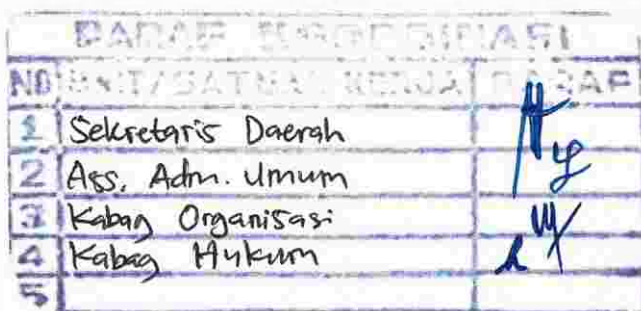 PARAF KOORDINASI
NO UNIT/SATUAN KERJA PARAF
1 Sekretaris Daerah
2 Ass. Adm. Umum
3 Kabag Organisasi
4 Kabag Hukum
5